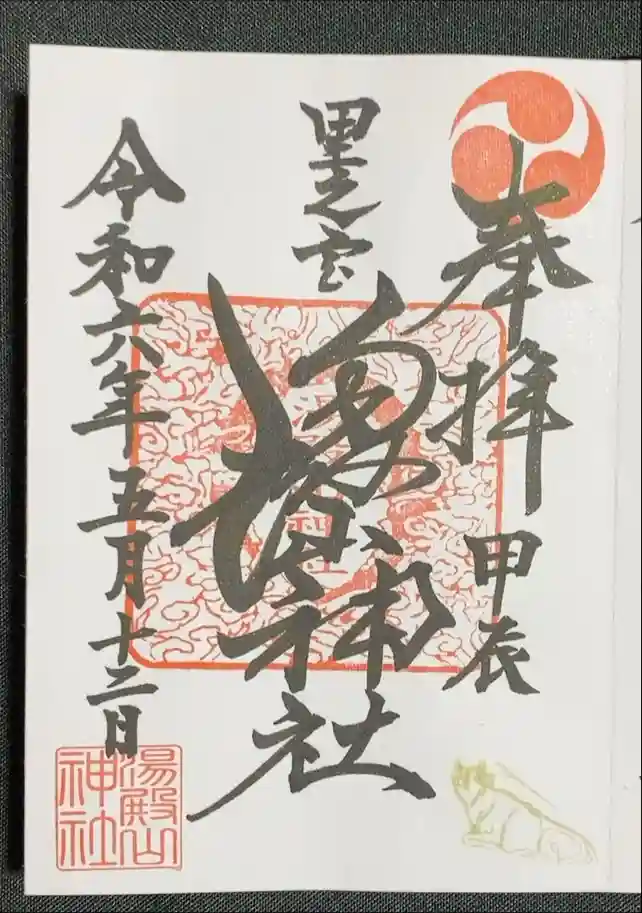 奉拝
甲辰
里之宮
神社
令和六年五月十二日
湯殿山
神社